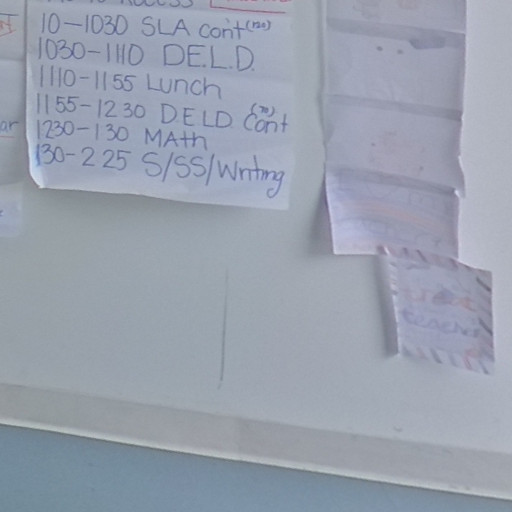 10-1030 SLA cont (120)
1030-1110 D.E.L.D.
1110-1155 Lunch
1155-1230 D.E.L.D. Cont (70)
1230-130 MAth
130-225 S/SS/Writing
ar